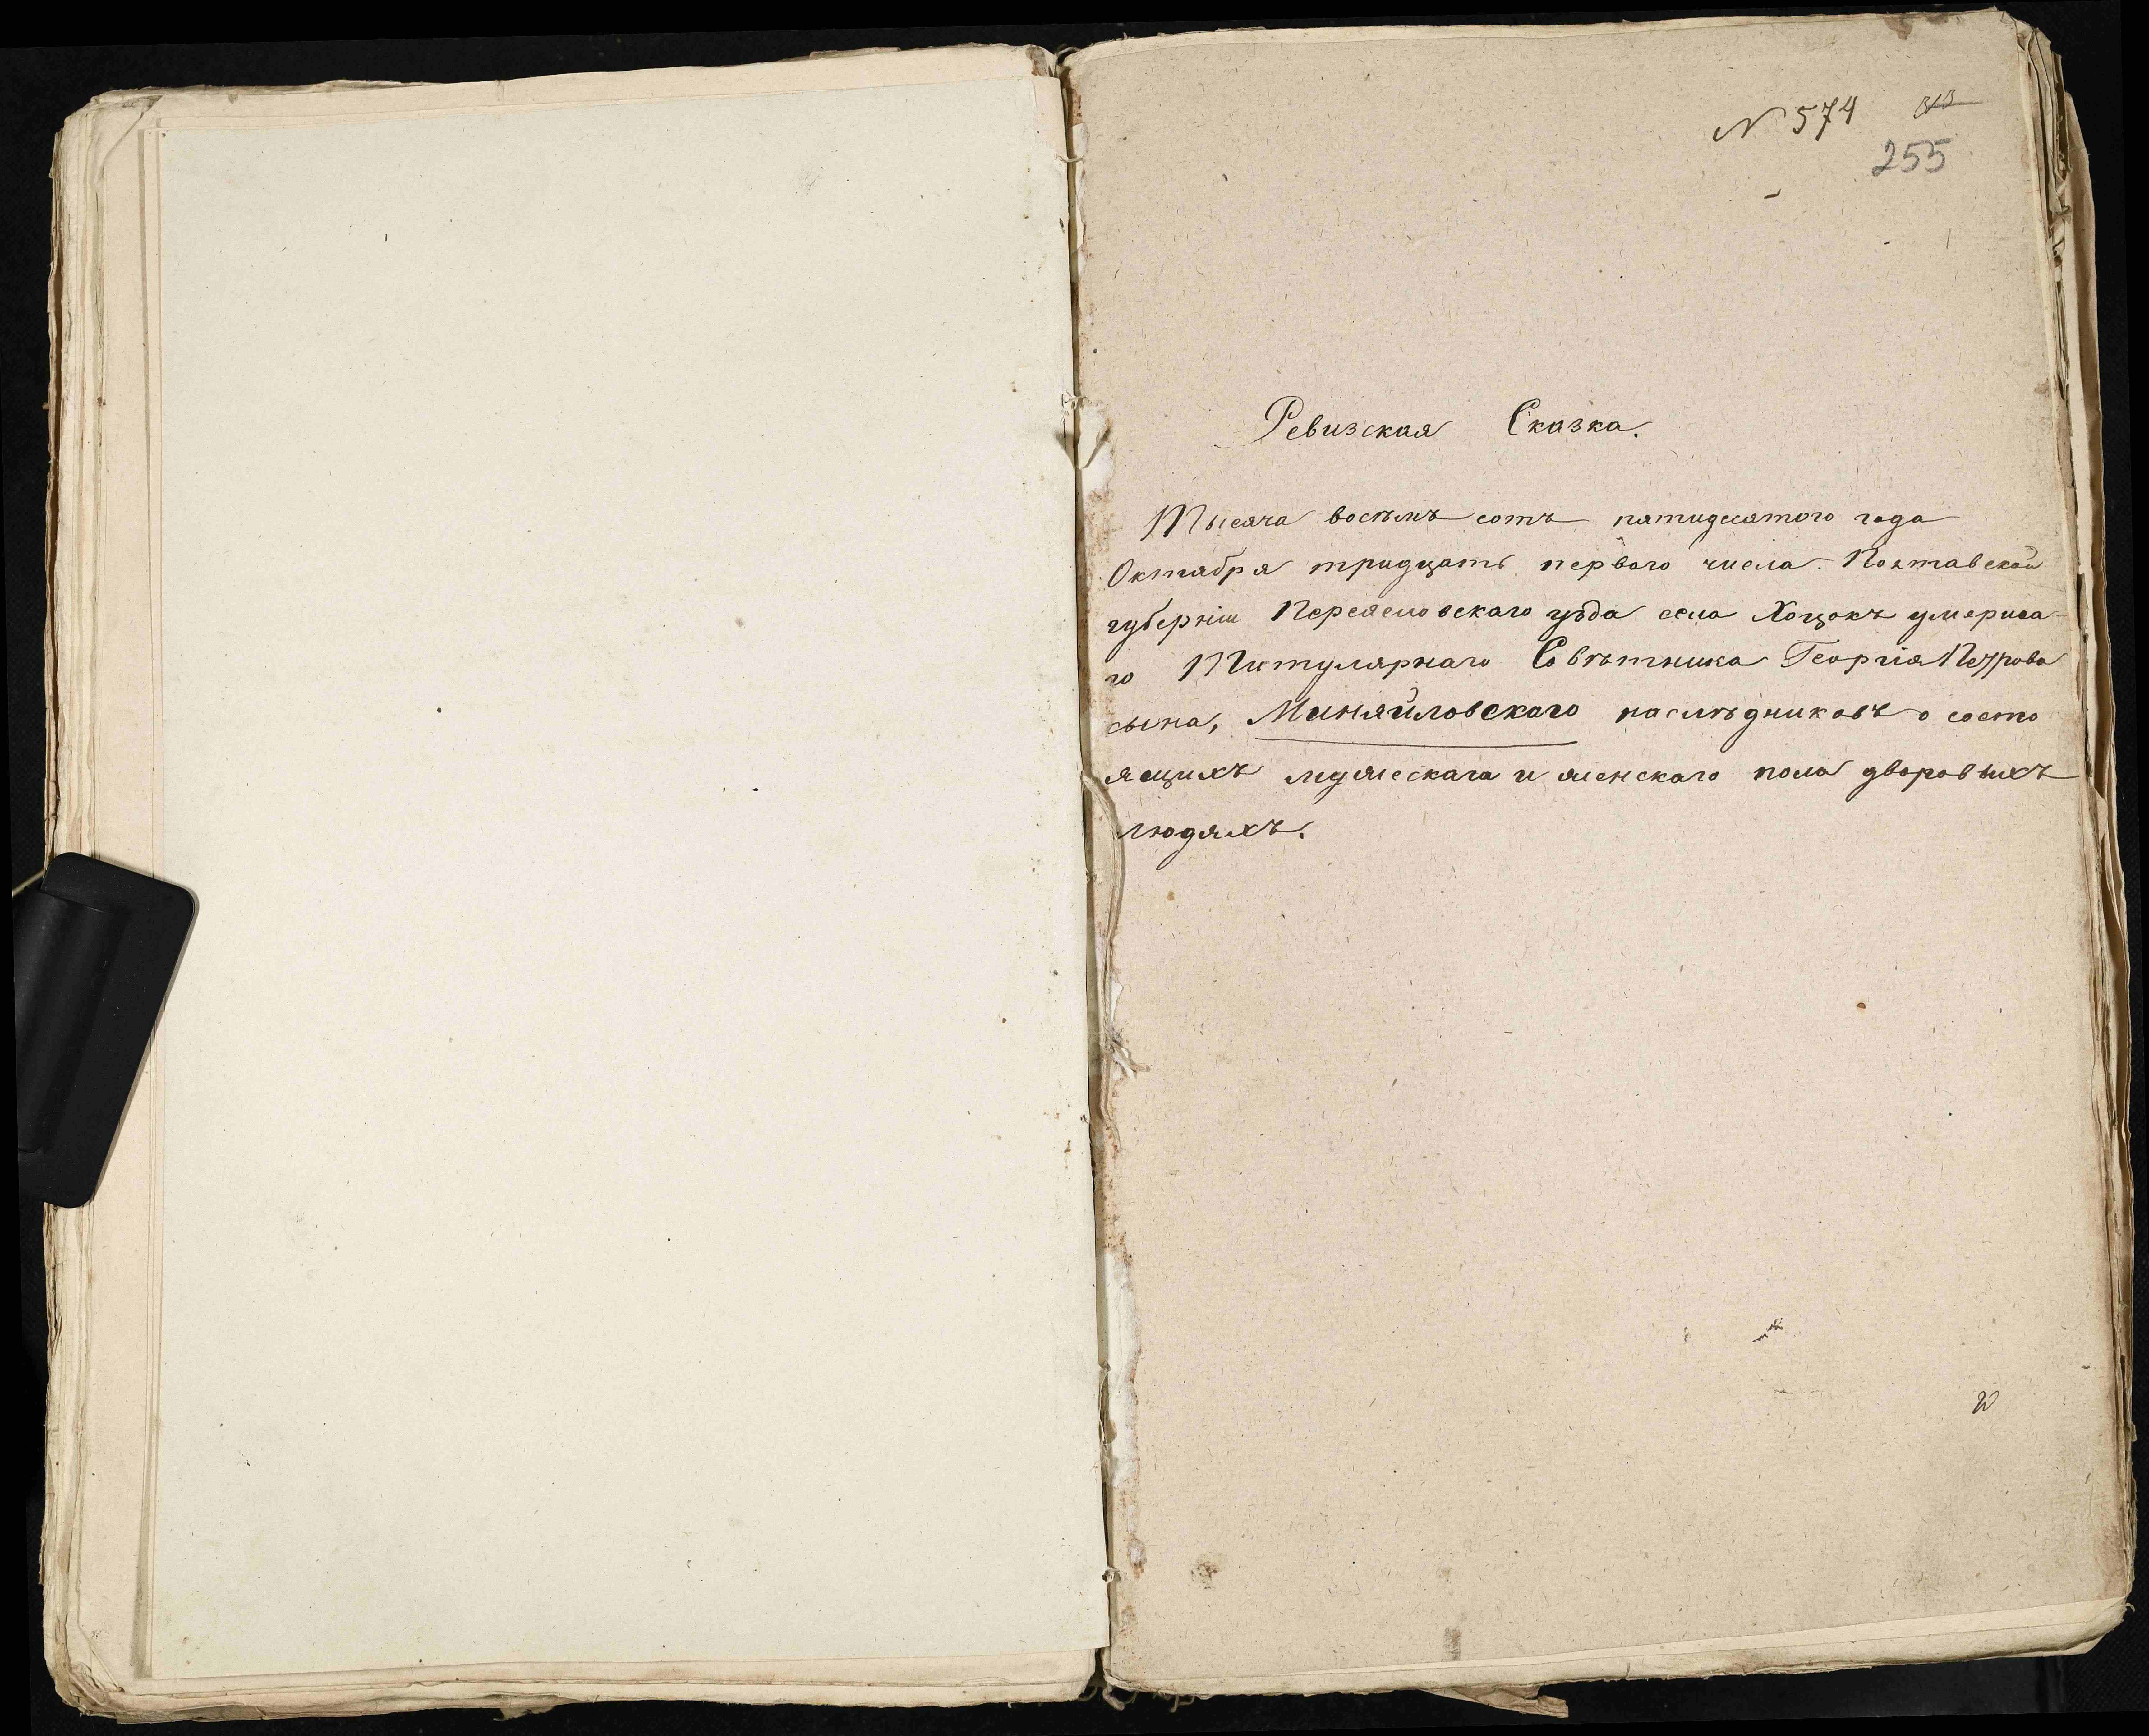 N 574
255
Ревизская Сказка.
Тысяча восѣмъ сотъ пятидесятого года
Октября тридцать первого числа. Полтавской
губерніи Переясловскаго уѣзда села Хоцокъ умерша-
го Титулярнаго Совѣтника Георгія Петрова
сына, Миняйловскаго наслѣдниковъ о состо
ящихъ мужескаго и женскаго пола дворовыхъ
людяхъ.